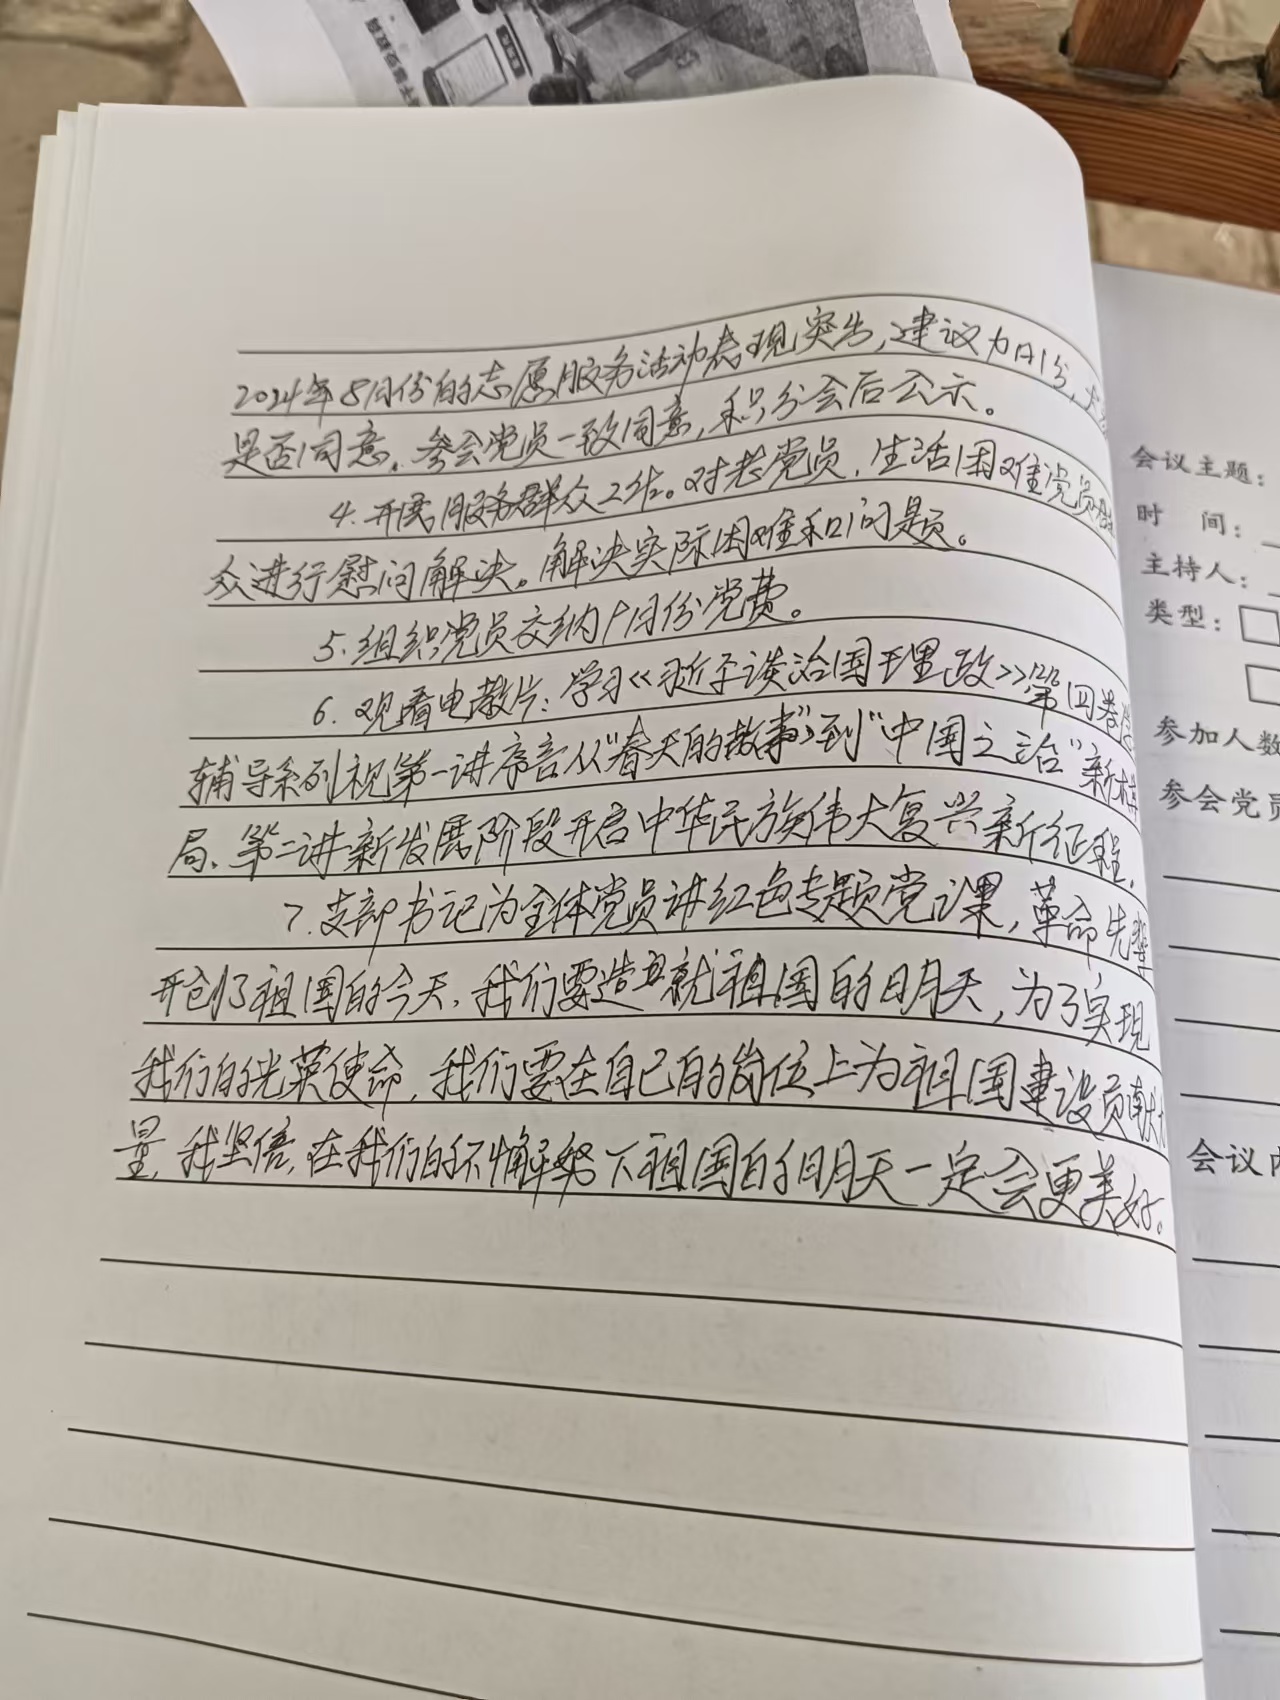 2024年8月份的志愿服务活动表现突出,建议加1分,大家
是否同意。参会党员一致同意,积分会后公示。
4. 开展服务群众工作。对老党员,生活困难党员群
众进行慰问解决。解决实际困难和问题。
5. 组织党员交纳9月份党费。
6. 观看电教片:学习《习近平谈治国理政》第四卷
辅导系列视第一讲序言从“春天的故事”到“中国之治”新格
局、第二讲新发展阶段开启中华民族伟大复兴新征程.
7. 支部书记为全体党员讲红色专题党课,革命先辈
开创了祖国的今天,我们要造就祖国的明天,为了实现
我们的光荣使命,我们要在自己的岗位上为祖国建设贡献力
量,我坚信,在我们的不懈努下祖国的明天一定会更美好。
会议主题:
时 间:
主持人:
类型:
参加人数
参会党员
会议内